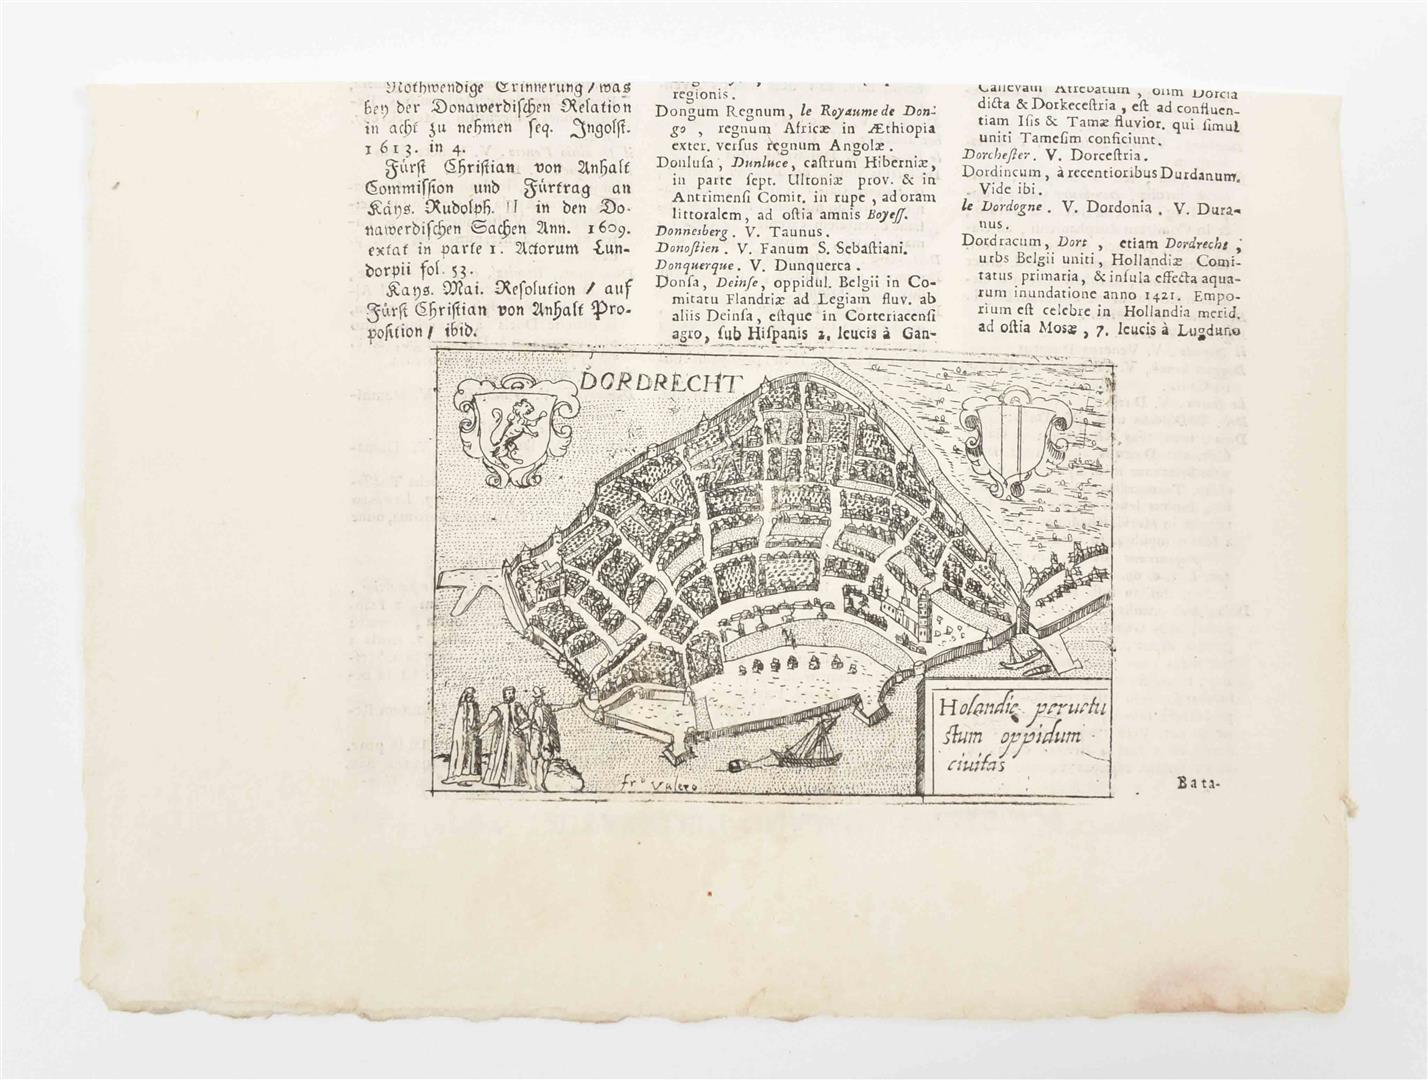 Nothwendige Erinnerung / was
bey der Donawerdischen Relation
in acht zu nehmen seq. Ingolst.
1613. in 4.
Fürst Christian von Anhalt
Commission und Fürtrag an
Käys. Rudolph. II in den Do-
nawerdischen Sachen Ann. 1609.
extat in parte 1. Actorum Lun-
dorpii fol. 53.
Kays. Mai. Resolution / auf
Fürst Christian von Anhalt Pro-
position / ibid.
regionis.
Dongum Regnum, le Royaume de Don-
go, regnum Africæ in Æthiopia
exter. versus regnum Angolæ.
Donlusa, Dunluce, castrum Hiberniæ,
in parte sept. Ultoniæ prov. & in
Antrimensi Comit. in rupe, ad oram
littoralem, ad ostia amnis Boyess.
Donnesberg. V. Taunus.
Donostien. V. Fanum S. Sebastiani.
Donquerque. V. Dunquerca.
Donsa, Deinse, oppidul. Belgii in Co-
mitatu Flandriæ ad Legiam fluv. ab
aliis Deinsa, estque in Corteriacensi
agro, sub Hispanis 2. leucis à Gan-
Callevam Atrebatum, olim Dorcia
dicta & Dorkecestria, est ad confluen-
tiam Isis & Tamæ fluvior. qui simul
uniti Tamesim conficiunt.
Dorchester. V. Dorcestria.
Dordincum, à recentioribus Durdanum.
Vide ibi.
le Dordogne. V. Dordonia. V. Dura-
nus.
Dordracum, Dort, etiam Dordrecht,
urbs Belgii uniti, Hollandiæ Comi-
tatus primaria, & insula effecta aqua-
rum inundatione anno 1421. Empo-
rium est celebre in Hollandia merid.
ad ostia Mosæ, 7. leucis à Lugduno
DORDRECHT
Holandie peructu
stum oppidum
ciuitas
frº Valeso
Bata-